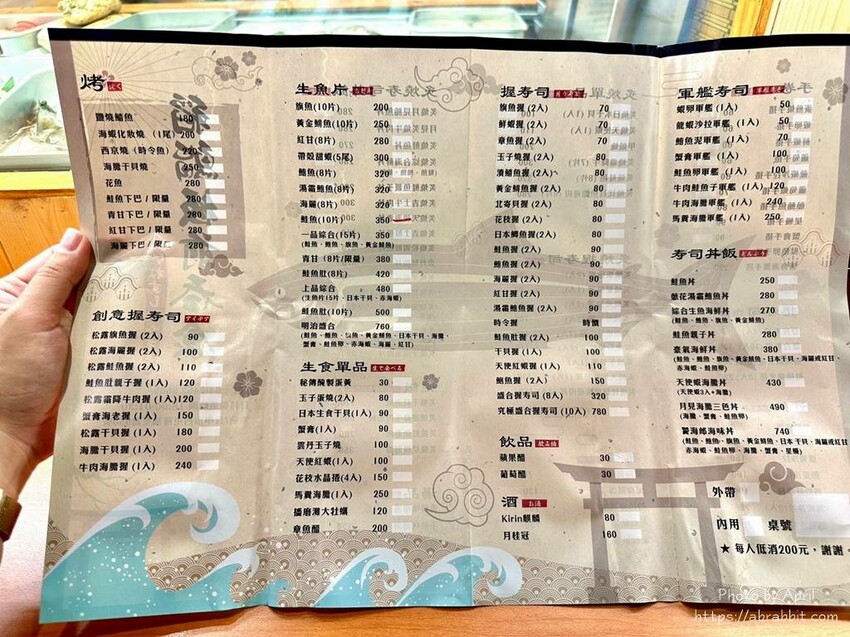 烤
鹽燒鯖魚 180
海蝦化妝燒（1尾）200
西京燒（時令魚）220
海膽干貝燒 250
花魚 280
鮭魚下巴/限量 280
青甘下巴/限量 280
紅甘下巴/限量 280
海鱺下巴/限量 280
創意握寿司
松露旗魚握（2入） 90
松露海鱺握（2入） 100
松露鮭魚握（2入） 110
鮭魚肚親子握（1入） 120
松露霜降牛肉握（1入）120
蟹膏海老握（1入） 150
松露干貝握（1入） 180
海膽干貝握（1入） 200
牛肉海膽握（1入） 240
生魚片
旗魚(10片) 200
黃金鯡魚(10片) 250
紅甘(8片) 280
帶殼甜蝦(5尾) 300
鮪魚(8片) 320
湯霜鮪魚(8片) 320
海鱺(8片) 320
鮭魚(10片) 350
一品綜合(15片) 350
(鮭魚、鮪魚、旗魚、黃金鯡魚)
青甘（8片/限量）380
鮭魚肚(8片) 420
上品綜合 480
(生魚片15片、日本干貝、赤海蝦)
鮭魚肚(10片) 500
明治綜合 760
(鮭魚、鮪魚、旗魚、黃金鯡魚、日本干貝、海膽、
蟹膏、鮭魚卵、赤海蝦、海鱺、紅甘)
生食單品
秘傳醃製蛋黃 30
玉子蛋燒(2入) 80
日本生食干貝(1入) 90
蟹膏(1入) 90
雲丹玉子燒 100
天使紅蝦(1入) 100
花枝水晶捲(4入) 150
馬糞海膽(1入) 250
播磨灘大牡蠣 120
章魚醋 200
握寿司
旗魚握（2入） 70
鮮蝦握（2入） 70
章魚握（2入） 70
玉子燒握（2入） 80
漬鮪魚握（2入） 80
黃金鯡魚握（2入） 80
北寄貝握（2入） 80
花枝握（2入） 80
日本鯛魚握（2入） 80
鮭魚握（2入） 90
鮪魚握（2入） 90
海鱺握（2入） 90
紅甘握（2入） 90
湯霜鮪魚握（2入） 90
時令握 時價
鮭魚肚握（2入） 100
干貝握（1入） 100
天使紅蝦握（1入） 110
鮑魚握（2入） 150
盛合握寿司（8入） 320
究極盛合握寿司（10入） 780
飲品
蘋果醋 30
葡萄醋 30
酒
Kirin麒麟 80
月桂冠 160
軍艦寿司
蝦卵軍艦（1入） 50
龍蝦沙拉軍艦（1入） 50
鮪魚泥軍艦（1入） 70
蟹膏軍艦（1入） 100
鮭魚卵軍艦（1入） 100
牛肉鮭魚子軍艦（1入）120
牛肉海膽軍艦（1入） 220
馬糞海膽軍艦（1入） 250
寿司丼飯
鮭魚丼 250
蔥花湯霜鮪魚丼 280
綜合生魚海鮮丼 270
(鮭魚、鮪魚、旗魚、黃金鯡魚)
鮭魚親子丼 280
豪氣海鮮丼 380
(鮭魚、鮪魚、旗魚、黃金鯡魚、日本干貝、海鱺或紅甘、
赤海蝦、鮭魚卵)
天使蝦海膽丼 430
(天使蝦3入+海膽)
月見海膽三色丼 490
(海膽、蟹膏、鮭魚卵)
鷲海郎海味丼 740
(鮭魚、鮪魚、旗魚、黃金鯡魚、日本干貝、海鱺或紅甘
赤海蝦、鮭魚卵、海膽、蟹膏、星鰻)
外帶
內用 桌號
★ 每人低消200元，謝謝。
Photo by April
https://abrahbit.com